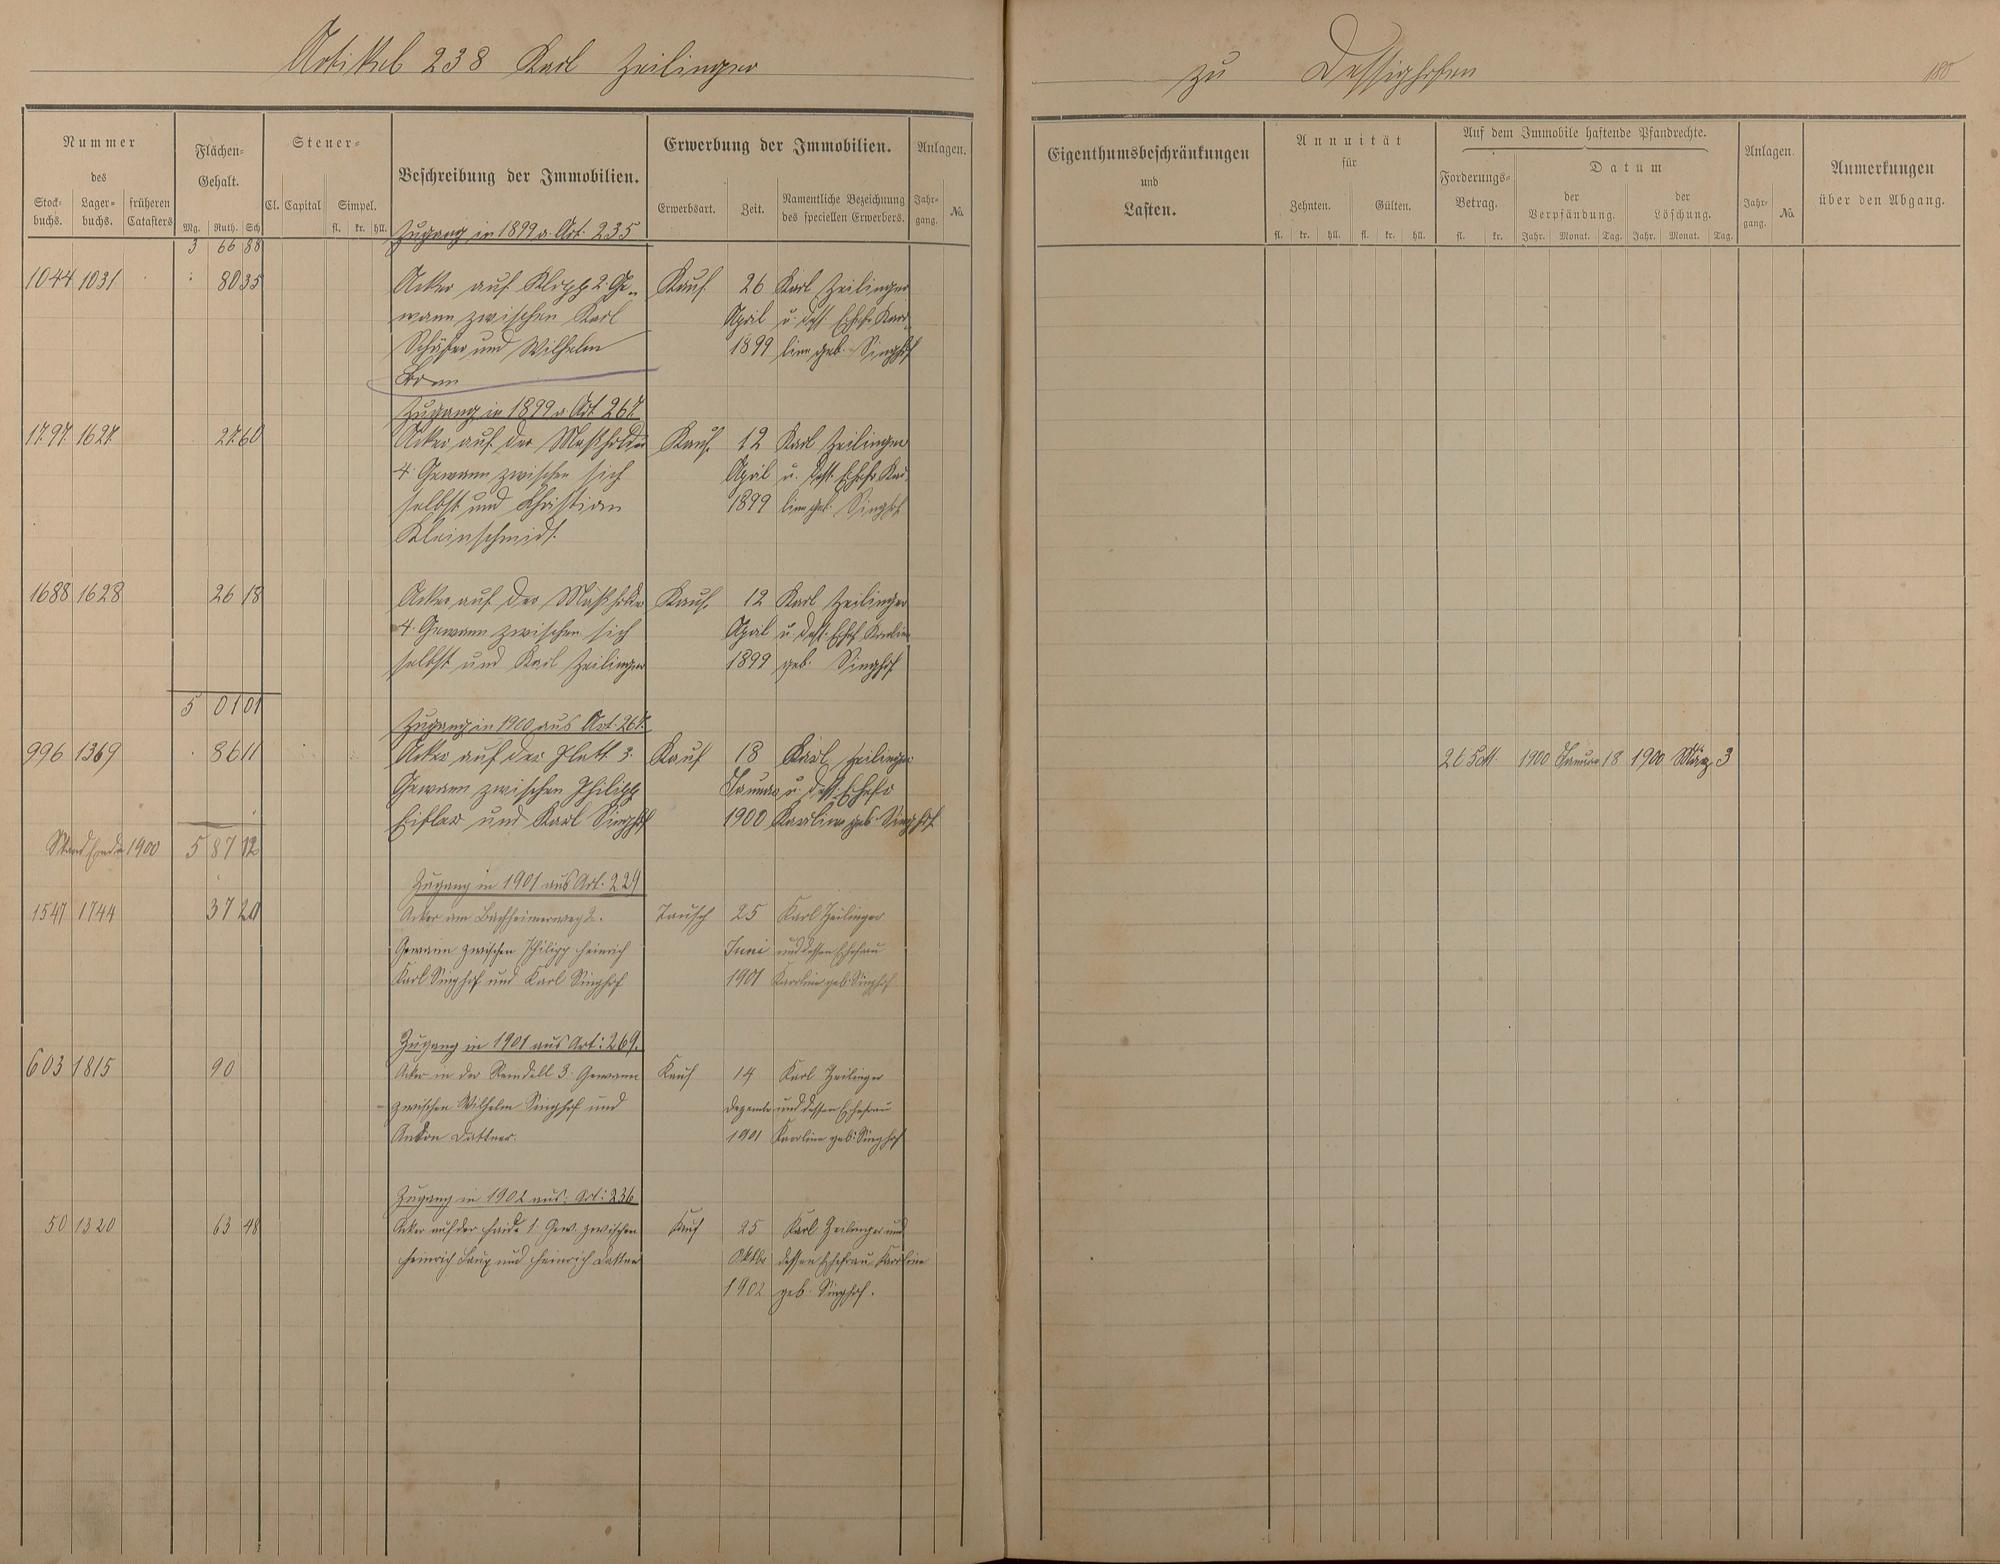 Artikel 238 Karl Zeilinger
zu Dessighofen
180
Nummer
des
Stock-
buchs.
Lager-
buchs.
früheren
Catasters
Flächen-
Gehalt.
Mg. Ruth. Sch.
Steuer-
Cl. Capital Simpel.
fl. kr. hll.
Beschreibung der Immobilien.
Erwerbung der Immobilien.
Erwerbsart. Zeit.
Namentliche Bezeichnung
des speciellen Erwerbers.
Anlagen.
Jahr-
gang.
No.
Eigenthumsbeschränkungen
und
Lasten.
Annuität
für
Zehnten. Gülten.
fl. kr. hll. fl. kr. hll.
Auf dem Immobile haftende Pfandrechte.
Forderungs-
Betrag.
fl. kr.
Datum
der
Verpfändung.
der
Löschung.
Jahr. Monat. Tag. Jahr. Monat. Tag.
Anlagen.
Jahr-
gang.
No.
Anmerkungen
über den Abgang.
Zugang in 1899 a. Art. 235
3 66 88
1044 1031 80 35 Acker auf Klopp 2. Ge- Kauf 26 Karl Zeilinger
wann zwischen Karl April u. dess. Ehefr. Karo-
Schäfer und Wilhelm 1899 line geb. Singhof
Born
Zugang in 1899 a. Art 267
1797 1627 27 60 Acker auf der Maßholder Kauf. 12 Karl Zeilinger
4. Gewann zwischen sich April u. dess. Ehefr. Karo-
selbst und Christian 1899 line geb. Singhof
Kleinschmidt.
1688 1628 26 18 Acker auf der Maßholder Kauf. 12 Karl Zeilinger
4. Gewann zwischen sich April u. dess. Ehefr. Karoline
selbst und Karl Zeilinger 1899 geb. Singhof
5 01 01
Zugang in 1900 aus Art. 267.
996 1369 86 11 Acker auf der Platt 3. Kauf 18 Karl Zeilinger 1900 Januar 18 1900 März 3
Gewann zwischen Philipp Januar u. dess. Ehefr
Eifler und Karl Singhof 1900 Karoline geb. Singhof
Stand Ende 1900 5 87 12
Zugang in 1901 aus Art. 229
1547 1744 37 20 Acker am Bachheimerweg 2. Tausch 25 Karl Zeilinger
Gewann zwischen Philipp Heinrich Juni und dessen Ehefrau
Karl Singhof und Karl Singhof 1901 Karoline geb. Singhof
Zugang in 1901 aus Art: 269.
603 1815 90 Acker in der Remdell 3. Gewann Kauf 14 Karl Zeilinger
zwischen Wilhelm Singhof und Dezember und dessen Ehefrau
Anton Dattner. 1901 Karoline geb: Singhof
Zugang in 1902 aus: Art: 236
50 1320 63 48 Acker auf der Haide 1. Gew. zwischen Kauf 25 Karl Zeilinger und
Heinrich Laux und Heinrich Dattner Oktbr dessen Ehefrau Karoline
1902 geb. Singhof.